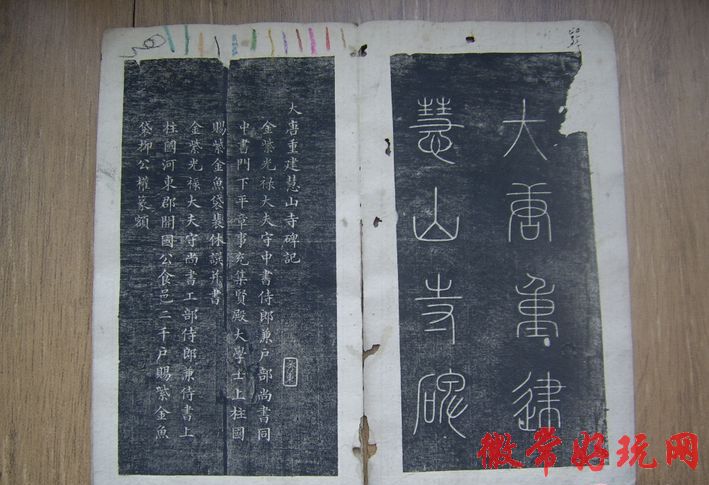 大唐重建
慧山寺碑
大唐重建慧山寺碑記
金紫光禄大夫守中書侍郎兼戶部尚書同
中書門下平章事充集賢殿大學士上柱國
賜紫金魚袋裴休譔并書
金紫光禄大夫守尚書工部侍郎兼侍書上
柱國河東郡開國公食邑二千戶賜紫金魚
袋柳公權篆額
徽常好玩网